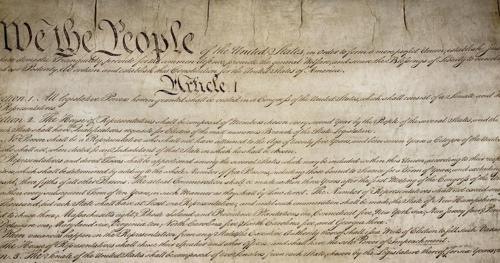 We the People of the United States, in Order to form a more perfect Union, establish
domestic Tranquility, provide for the common defence, promote the general Welfare, and secure the Blessings of Liberty to
our Posterity, do ordain and establish this Constitution for the United States of America.
Article 1
Section 1. All legislative Powers herein granted shall be vested in a Congress of the United States, which shall consist of a Senate and
Representatives.
Section 2. The House of Representatives shall be composed of Members chosen every second Year by the People of the several States, and the
each State shall have Qualifications requisite for Electors of the most numerous Branch of the State Legislature.
No Person shall be a Representative who shall not have attained to the Age of twenty five Years, and been seven Years a Citizen of the
shall not, when elected, be an Inhabitant of that State in which he shall be chosen.
Representatives and direct Taxes shall be apportioned among the several States which may be included within this Union, according to their
which shall be determined by adding to the whole Number of free Persons, including those bound to Service for a Term of Years, and
three fifths of all other Persons. The actual Enumeration shall be made within three Years after the first Meeting of the Congress of the
Term of ten Years, in such Manner as they shall by Law direct. The Number of Representatives shall not exceed one
shall have at Least one Representative; and until such enumeration shall be made, the State of New Hampshire
to chuse three, Massachusetts eight, Rhode Island and Providence Plantations one, Connecticut five, New York six, New Jersey four,
Delaware one, Maryland six, Virginia ten, North Carolina five, South Carolina five, and Georgia three.
vacancies happen in the Representation from any State, the Executive Authority thereof shall issue Writs of Election to fill such
The House of Representatives shall chuse their Speaker and other Officers; and shall have the sole Power of Impeachment.
3. The Senate of the United States shall be composed of two Senators from each State, chosen by the Legislature thereof, for six Years;